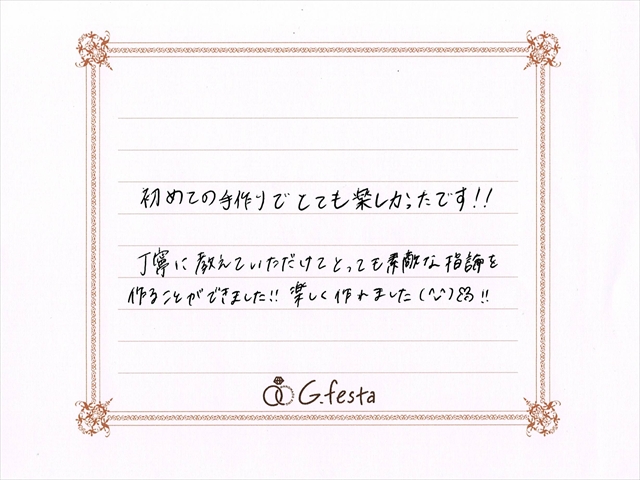 初めての手作りでとても楽しかったです!!
丁寧に教えていただけてとっても素敵な指輪を
作ることができました!! 楽しく作れました(^^)!!
G.festa